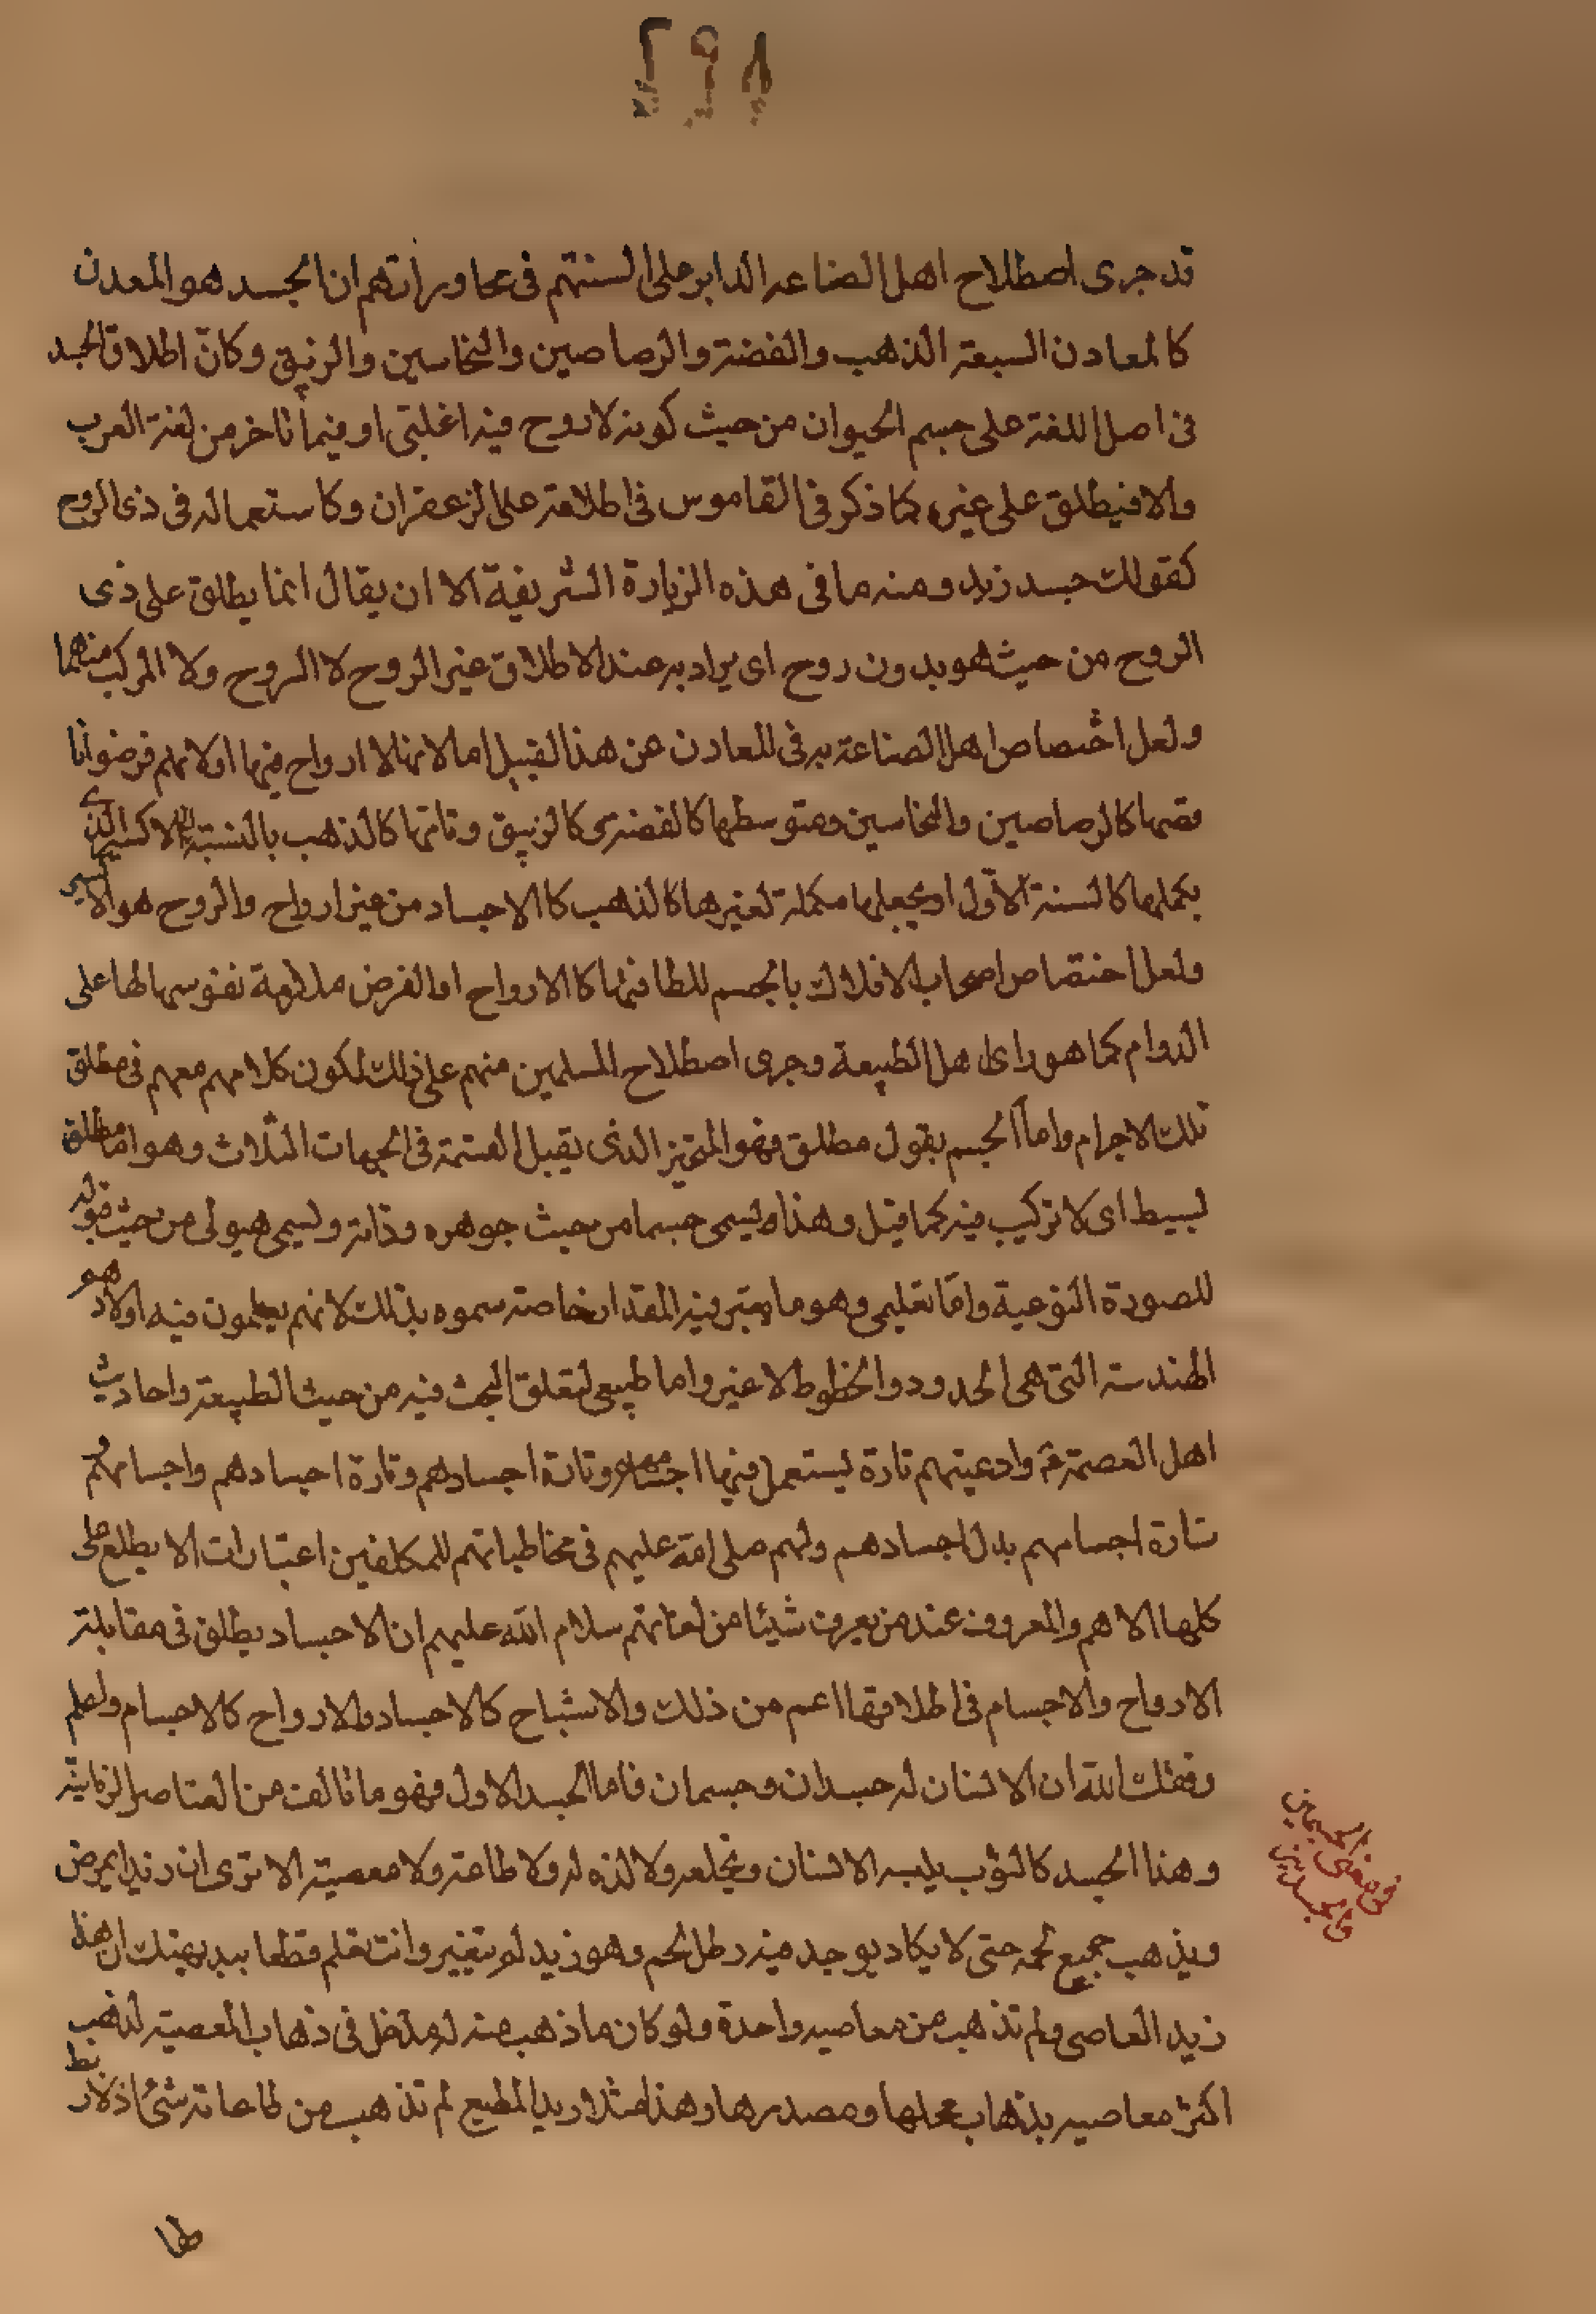 ٢٩٨
قد جرى اصطلاح اهل الصناعه الدابر على السنتهم فى محاوراتهم ان الجسد هو المعدن
كالمعادن السبعة الذهب والفضة والرصاصين والنحاسين والزئبق وكان اطلاق الجسد
فى اصل اللغة على جسم الحيوان من حيث كونه لا روح فيه اغلبى او فيما تاخر من لغة العرب
والا فيطلق على غيره كما ذكر فى القاموس فى اطلاقه على الزعفران وكاستعماله فى ذى الروح
كقولك جسد زيد ومنه ما فى هذه الزيارة الشريفة الا ان يقال انما يطلق على ذى
الروح من حيث هو بدون روح اى يراد به عند الاطلاق غير الروح لا الروح ولا المركب منهما
ولعل اختصاص اهل الصناعة به فى المعادن من هذا القبيل اما لانها لا ارواح فيها او لانهم فرضوا نا
قصها كالرصاصين والنحاسين ومتوسطها كالفضة كالزيبق وتامها كالذهب بالنسبة الى الاكسير الذى
يكملها كالستة الاول او يجعلها مكملة لغيرها كالذهب كالاجساد من غير ارواح والروح هو الاكسير
ولعل اختصاص اصحاب الافلاك بالجسم للطافتها كالارواح او لفرض ملازمة نفوسها لها على
الدوام كما هو راى اهل الطبيعة وجرى اصطلاح المسلمين منهم على ذلك لكون كلامهم معهم فى مطلق
تلك الاجرام واما الجسم بقول مطلق فهو المتحيز الذى يقبل القسمة فى الجهات الثلاث وهو اما مطلق
بسيط اى لا تركيب فيه كما قيل وهذا يسمى جسما من حيث جوهره وذاته ويسمى هيولى من حيث قبوله
للصورة النوعية واما تعليمى وهو ما يعتبر فيه المقدار خاصة سموه بذلك لانهم يعلمون فيه اولاد هم
الهندسة التى هى الحدود والخطوط لا غير واما طبيعى لتعلق البحث فيه من حيث الطبيعة واحاديث
اهل العصمة وادعيتهم تارة يستعمل فيها اجسامهم وتارة اجسادهم وتارة اجسادهم واجسامهم و
تارة اجسامهم بدل اجسادهم ولهم صلى الله عليهم فى مخاطباتهم للمكلفين اعتبارات لا يطلع على
كلها الا هم والمعروف عند من يعرف شيئا من لغاتهم سلام الله عليهم ان الاجساد يطلق فى مقابلة
الارواح والاجسام فى اطلاقها اعم من ذلك والاشباح كالاجساد والارواح كالاجسام واعلم
وفقك الله ان الانسان له جسدان وجسمان فاما الجسد الاول فهو ما تالف من العناصر الزمانية
وهذا الجسد كالثوب يلبسه الانسان ويخلعه ولا لذة له ولا طاعة ولا معصية الا ترى ان زيدا يمرض
ويذهب جميع لحمه حتى لا يكاد يوجد فيه رطل لحم وهو زيد لم يتغير وانت تعلم قطعا ببديهتك ان هذا
زيد العاصى ولم تذهب من معاصيه واحدة ولو كان ما ذهب منه له مدخل فى ذهاب المعصية لذهب
اكثر معاصيه بذهاب محلها ومصدرها وهذا مثلا زيد المطيع لم تذهب من طاعاته شئ اذ لا ربط
فى معنى الجسمين
والجسدين
لها